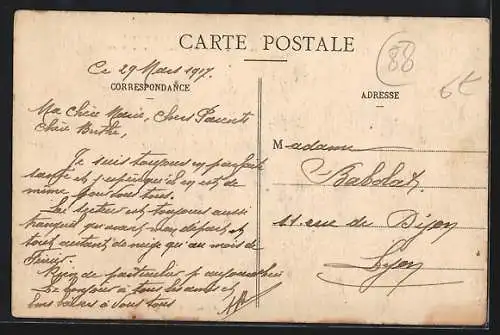 CARTE POSTALE
88
6€
Ce 29 Mars 1917.
CORRESPONDANCE
ADRESSE
Ma Chère Marie, Chers Parents
Chère Berthe,
Je suis toujours en parfaite
santé et j'espère qu'il en est de
même pour vous tous.
Le secteur est toujours aussi
tranquil qu'avant mon départ, et
tout autant de neige qu'au mois de
février.
Rien de particulier p. aujourd'hui
Le bonjour à tous les amis et
bons baisers à vous tous
Madame
Babolat
11 rue de Dijon
Lyon